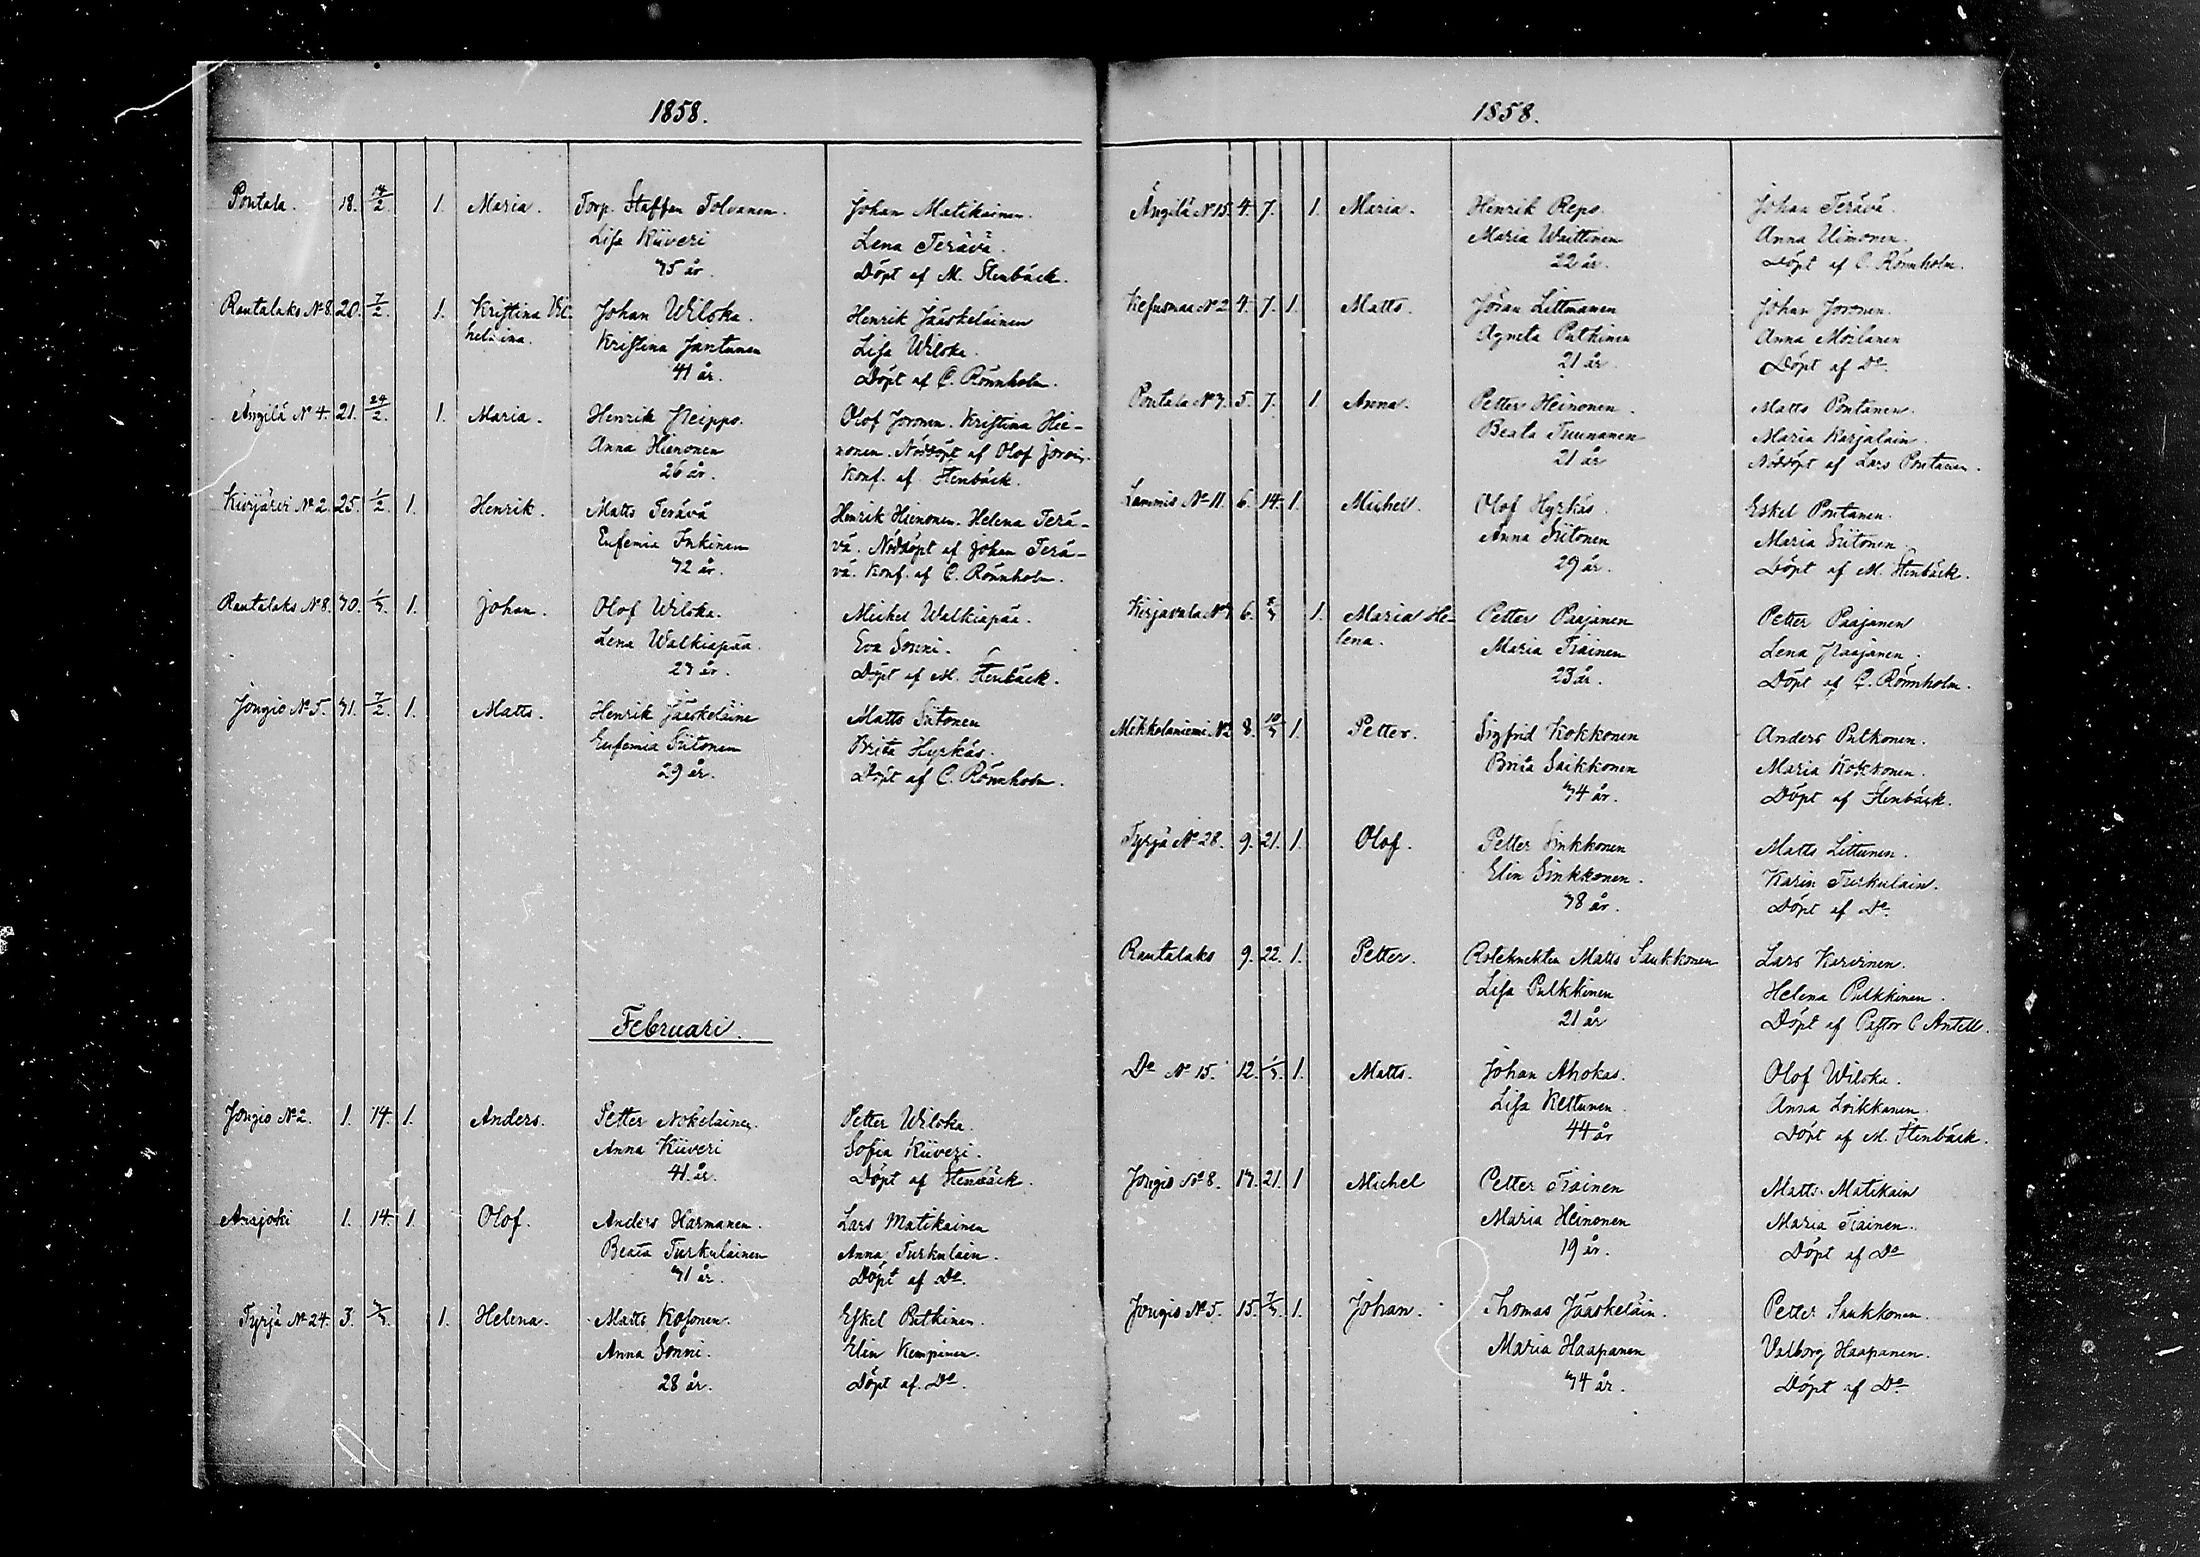 1858.
Pontala. 18. 14/2. 1. Maria. Torp. Staffan Tolvanen. Johan Matikainen.
Lisa Kiiveri Lena Terävä.
35 år. Döpt af M. Stenbäck.
Rautalaks No 8. 20. 7/2. 1. Kristina Vil- Johan Wiloka. Henrik Jääskeläinen
helmina. Kristina Jantunen Lisa Wiloka.
41 år. Döpt af C. Rönnholm.
Ängilä No 4. 21. 24/2. 1. Maria. Henrik Neippo. Olof Joronen. Kristina Hie-
Anna Hienonen nonen. Nöddöpt af Olof Joroin.
26 år. Konf. af Stenbäck.
Kirjärvi No 2. 25. 1/2. 1. Henrik. Matts Terävä Henrik Hienonen. Helena Terä-
Eufemia Inkinen vä. Nöddöpt af Johan Terä-
32 år. vä. Konf. af C. Rönnholm.
Rautalaks No 8. 30. 1/3. 1. Johan. Olof Wiloka. Michel Walkiapää.
Lena Walkiapää. Eva Sonni.
23 år. Döpt af M. Stenbäck.
Jongio No 5. 31. 7/2. 1. Matts. Henrik Jääskeläine Matts Siitonen
Eufemia Siitonen Brita Hyrkäs.
29 år. Döpt af C. Rönnholm.
Februari.
Jongio No 2. 1. 14. 1. Anders. Petter Nokelainen. Petter Wiloka.
Anna Kiiveri Sofia Kiiveri.
41 år. Döpt af Stenbäck.
Arajoki 1. 14. 1. Olof. Anders Harmanen. Lars Matikainen
Beata Turkulainen Anna Turkulain.
31 år. Döpt af Do.
Tyrjä No 24. 3. 1. Helena. Matts Kosonen. Eskel Putkinen.
Anna Sonni. Elin Kempinen.
28 år. Döpt af Do.
1858.
Ängilä No 15. 4. 7. 1. Maria. Henrik Repo. Johan Terävä.
Maria Waittinen Anna Uimonen.
22 år. Döpt af C. Rönnholm.
Kesusmaa No 2. 4. 7. 1. Matts. Jöran Littmanen Johan Joronen.
Agneta Putkinen Anna Moilanen
21 år. Döpt af Do.
Pontala No 3. 5. 7. 1. Anna. Petter Heinonen. Matts Pontanen.
Beata Tuunanen Maria Karjalain.
21 år Nöddöpt af Lars Pontanen.
Lammis No 11. 6. 14. 1. Michel. Olof Hyrkäs. Eskel Pontanen.
Anna Siitonen Maria Siitonen.
29 år. Döpt af M. Stenbäck.
Kirjavala No 6. 1. Maria He- Petter Paajanen Petter Paajanen
lena. Maria Tiainen Lena Naajanen.
23 år. Döpt af C. Rönnholm.
Mikkolaniemi No 2 8. 10/3 1. Petter. Sigfrid Kokkonen Anders Pulkonen.
Brita Saikkonen Maria Kokkonen.
34 år. Döpt af Stenbäck.
Tyrjä No 28. 9. 21. 1. Olof. Petter Sinkkonen Matts Littunen.
Elin Sinkkonen. Karin Turkulain.
38 år. Döpt af Do.
Rautalaks 9. 22. 1. Petter. Roteknekten Matts Saukkonen Lars Karvinen.
Lisa Pulkkinen Helena Pulkkinen.
21 år Döpt af Pastor C Antell.
Do No 15. 12. 1/3. 1. Matts. Johan Ahokas. Olof Wiloka.
Lisa Kettunen. Anna Loikkanen.
44 år Döpt af M. Stenbäck.
Jongio No 8. 13. 21. 1 Michel Petter Tiainen Matts Matikain
Maria Heinonen Maria Tiainen.
19 år. Döpt af Do
Jongio No 5. 15. 7/3. 1. Johan. Thomas Jääskeläin. Petter Saukkonen.
Maria Haapanen Valborg Haapanen.
34 år. Döpt af Do.